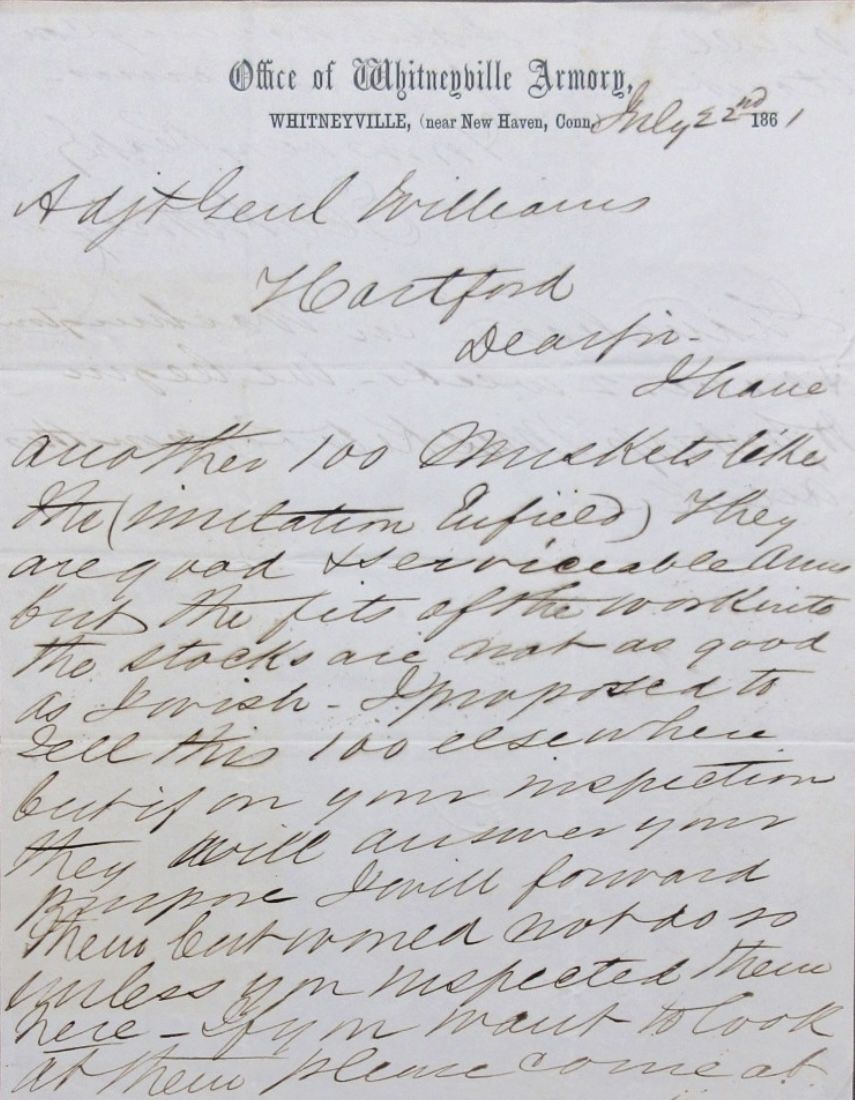 Office of Whitneyville Armory,
WHITNEYVILLE, (near New Haven, Conn.) July 22nd 1861
Adjt Genl Williams
Hartford
Dear Sir -
I have
another 100 Muskets like
the (imitation Enfield) They
are good & serviceable Arms
but the fits of the work into
the stocks are not as good
as I wish - I proposed to
sell this 100 elsewhere
but if on your inspection
they will answer your
purpose I will forward
them but would not do so
unless you inspected them
here - If you want to look
at them please come at